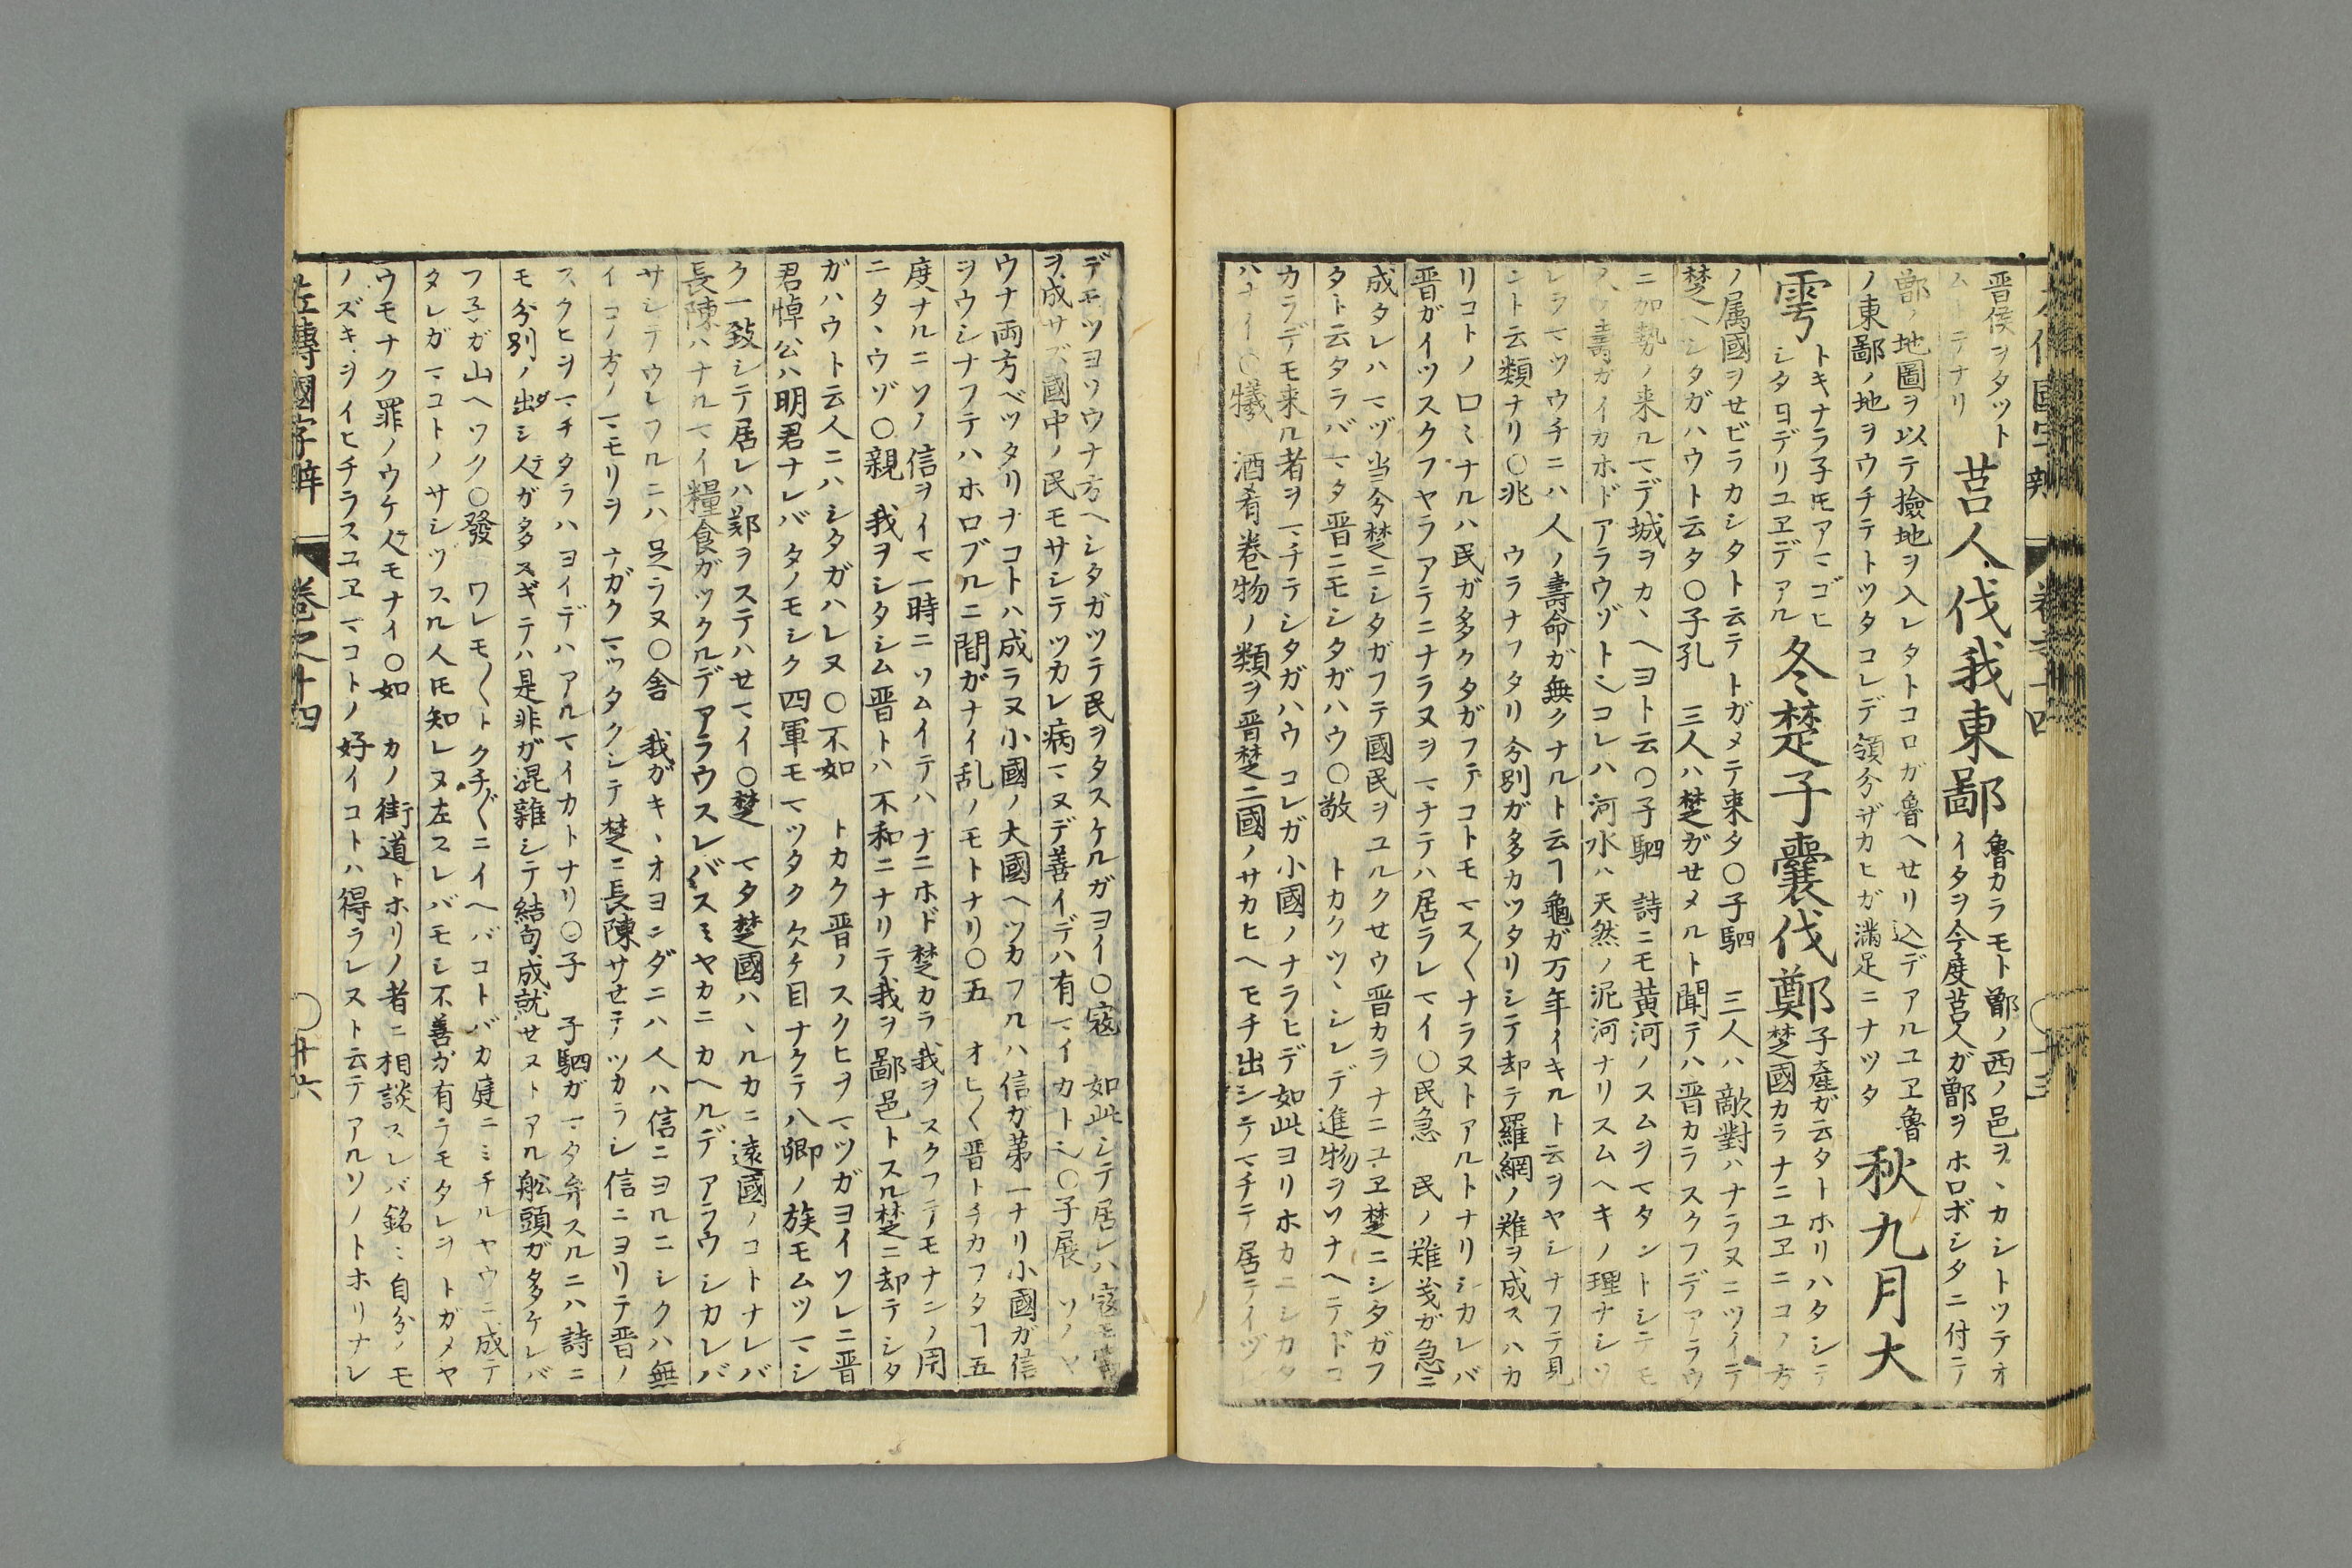 晋侯ヲタツト
ムトテナリ
莒人伐我東鄙
魯カラモト鄫ノ西ノ邑ヲ、カシトツテオ
イタヲ今度莒人ガ鄫ヲホロボシタニ付テ
鄫ノ地圖ヲ以テ撿地ヲ入レタトコロガ魯ヘセリ込デアルユヱ魯
ノ東鄙ノ地ヲウチテトツタコレデ領分ザカヒガ満足ニナツタ
秋九月大
雩
トキナラ子𪜈アマゴヒ
シタヨデリユヱデアル
冬楚子囊伐鄭
子產ガ云タトホリハタシテ
楚國カラナニユヱニコノ方
ノ属國ヲせビラカシタト云テトガメテ来タ○子駟 三人ハ敵對ハナラヌニツイテ
楚ヘシタガハウト云タ○子孔 三人ハ楚ガせメルト聞テハ晋カラスクフデアラウ
ニ加勢ノ来ルマデ城ヲカ、ヘヨト云○子駟 詩ニモ黃河ノスムヲマタントシテモ
壽ガイカホドアラウゾトコレハ河水ハ天然ノ泥河ナリスムヘキノ理ナシソ
レヲマツウチニハ人ノ壽命ガ無クナルト云ヿ龜ガ万年イキルト云ヲヤシナフテ見
ント云類ナリ○兆 ウラナフタリ分別ガ多カツタリシテ却テ羅網ノ難ヲ成スハカ
リコトノ口ミナルハ民ガ多クタガフテコトモマス〱ナラヌトアルトナリシカレバ
晋ガイツスクフヤラアテニナラヌヲマチテハ居ラレマイ○民急 民ノ難㐧ガ急ニ
成タレハマヅ当分楚ニシタガフテ國民ヲユルクせウ晋カラナニユヱ楚ニシタガフ
タト云タラバマタ晋ニモシタガハウ○敬 トカクツ、シンデ進物ヲソナヘテドコ
カラデモ来ル者ヲマチテシタガハウコレガ小國ノナラヒデ如此ヨリホカニシカタ
ハナイ○犠 酒肴卷物ノ類ヲ晋楚二國ノサカヒヘモチ出シテマチテ居テイヅ
デモツヨソウナ方ヘシタガツテ民ヲタスケルガヨイ○寇 如此シテ居レハ寇モ害
ヲ成サズ國中ノ民モサシテツカレ病マヌデ善イデハ有マイカト○子展 ソノヤ
ウナ両方ベツタリナコトハ成ラヌ小國ノ大國ヘツカフルハ信ガ苐一ナリ小國ガ信
ヲウシナフテハホロブルニ間ガナイ乱ノモトナリ○五 オヒ〱晋トチカフタヿ五
度ナルニソノ信ヲイマ一時ニソムイテハナニホド楚カラ我ヲスクフテモナンノ用
ニタ、ウゾ○親 我ヲシタシム晋トハ不和ニナリテ我ヲ鄙邑トスル楚ニ却テシタ
ガハウト云人ニハシタガハレヌ○不如 トカク晋ノスクヒヲマツガヨイソレニ晋
君悼公ハ明君ナレバタノモシク四軍モマツタク欠ケ目ナクテ八卿ノ族モムツマシ
ク一致シテ居レハ鄭ヲステハせマイ○楚 マタ楚國ハ、ルカニ遠國ノコトナレバ
長陳ハナルマイ糧食ガツクルデアラウスレバスミヤカニカヘルデアラウシカレバ
サシテウレフルニハ足ラヌ○舎 我ガキ、オヨンダニハ人ハ信ニヨルニシクハ無
イコノ方ノマモリヲナガクマツタクシテ楚ニ長陳サせテツカラシ信ニヨリテ晋ノ
スクヒヲマチタラハヨイデハアルマイカトナリ○子 子駟ガマタ弁スルニハ詩ニ
モ分別ノ出シ人ガ多スギテハ是非ガ混雜シテ結句成就せヌトアル舩頭ガ多ケレバ
フ子ガ山ヘツク○發 ワレモ〱トクチ〲ニイヘバコトバガ庭ニミチルヤウニ成テ
タレガマコトノサシツスル人𪜈知レヌ左スレバモシ不善ガ有テモタレヲトガメヤ
ウモナク罪ノウケ人モナイ○如 カノ街道トホリノ者ニ相談スレバ銘ミ自分ノモ
ノズキヲイヒチラスユヱマコトノ好イコトハ得ラレヌト云テアルソノトホリナレ
左傳國字辯 卷之十四 ○廿六